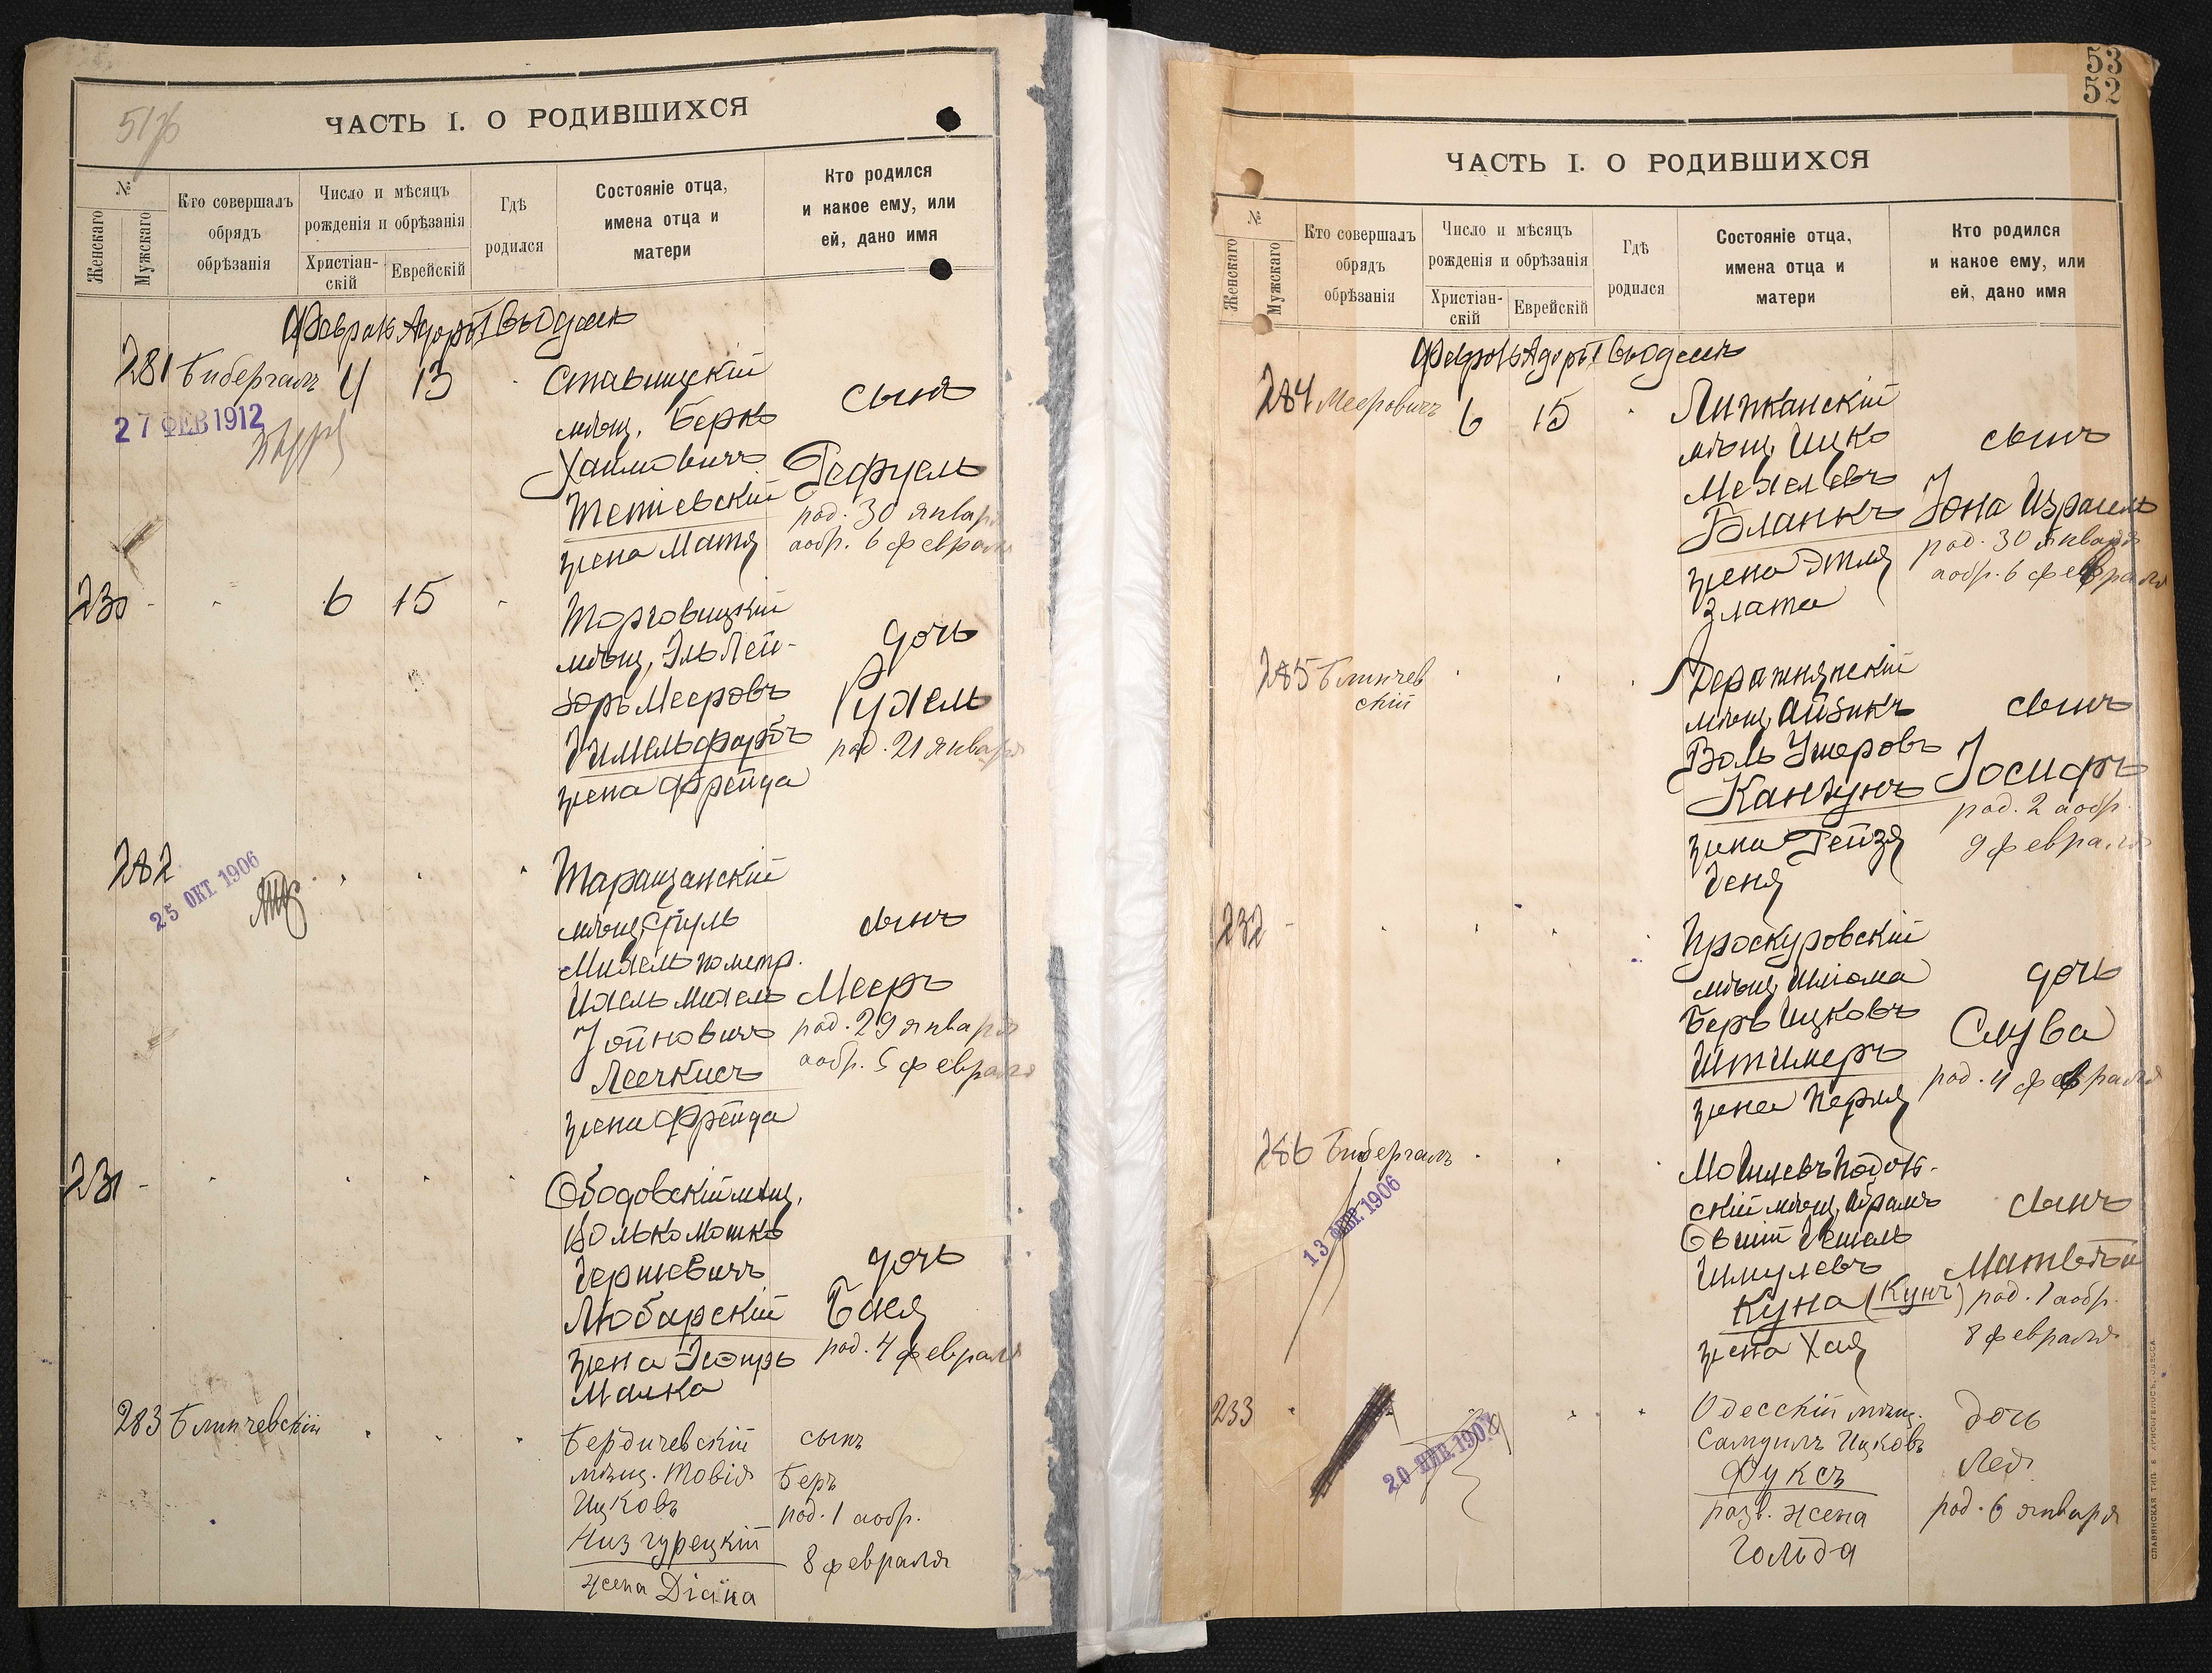 51/76
ЧАСТЬ I. О РОДИВШИХСЯ
№
Женскаго
Мужскаго
Кто совершалъ
обрядъ
обрѣзанія
Число и мѣсяцъ
рожденія и обрѣзанія
Христіан-
скій
Еврейскій
Гдѣ
родился
Состояніе отца,
имена отца и
матери
Кто родился
и какое ему, или
ей, дано имя
Февраль Адоръ I въ Одессѣ
281 Бибергалъ 4 13
27 ФЕВ 1912
Ставищскій
мѣщ. Берко
Хаимовичъ
Тетіевскій
жена Матя
сынъ
Рефуель
род. 30 января
аобр. 6 февраля
230 - 6 15
Торговицкій
мѣщ. Эль Лей-
зоръ Мееровъ
Гимельфарбъ
жена Фрейда
дочь
Рухель
род. 21 января
282
25 ОКТ 1906
Таращанскій
мѣщ. Сруль
Михель по метр.
Ихель Михель
Іойновичъ
Лечкисъ
жена Фрейда
сынъ
Мееръ
род. 29 января
аобр. 5 февраля
231 -
Ободовскій мѣщ.
Волько Мошко
Гершковичъ
Любарскій
жена Эстеръ
Малка
дочь
Бася
род. 4 февраля
283 Блинчевскій
Бердичевскій
мѣщ. Товія
Ицковъ
Низгурецкій
жена Діана
сынъ
Беръ
род. 1 аобр.
8 февраля
53
52
ЧАСТЬ I. О РОДИВШИХСЯ
№
Женскаго
Мужскаго
Кто совершалъ
обрядъ
обрѣзанія
Число и мѣсяцъ
рожденія и обрѣзанія
Христіан-
скій
Еврейскій
Гдѣ
родился
Состояніе отца,
имена отца и
матери
Кто родился
и какое ему, или
ей, дано имя
Февраль Адоръ I въ Одессѣ
284 Мееровичъ 6 15
Липканскій
мѣщ. Ицко
Мехелевъ
Бланкъ
жена Этля
Злата
сынъ
Іона Израиль
род. 30 января
аобр. 6 февраля
285 Блинчев
скій
Деражнянскій
мѣщ. Айзикъ
Воль Ушеровъ
Канзунъ
жена Рейзя
Геня
сынъ
Іосифъ
род. 2 аобр.
9 февраля
232 -
Проскуровскій
мѣщ. Шлома
Беръ Ицковъ
Штимеръ
жена Перля
дочь
Слува
род. 4 февраля
286 Бибергалъ
13 ФЕВ 1906
Могилевъ Подоль-
скій мѣщ. Абрамъ
Овшій Гешель
Шмулевъ
Куна (Кунъ)
жена Хая
сынъ
Матвѣй
род. 1 аобр.
8 февраля
233
20 ЯНВ 1907
Одесскій мѣщ.
Самуилъ Ицковъ
Фуксъ
разв. жена
Гольда
дочь
Лея
род. 6 января
СЛАВЯНСКАЯ ТИП. Е. ХРИСОГЕЛОСЪ, ОДЕССА.